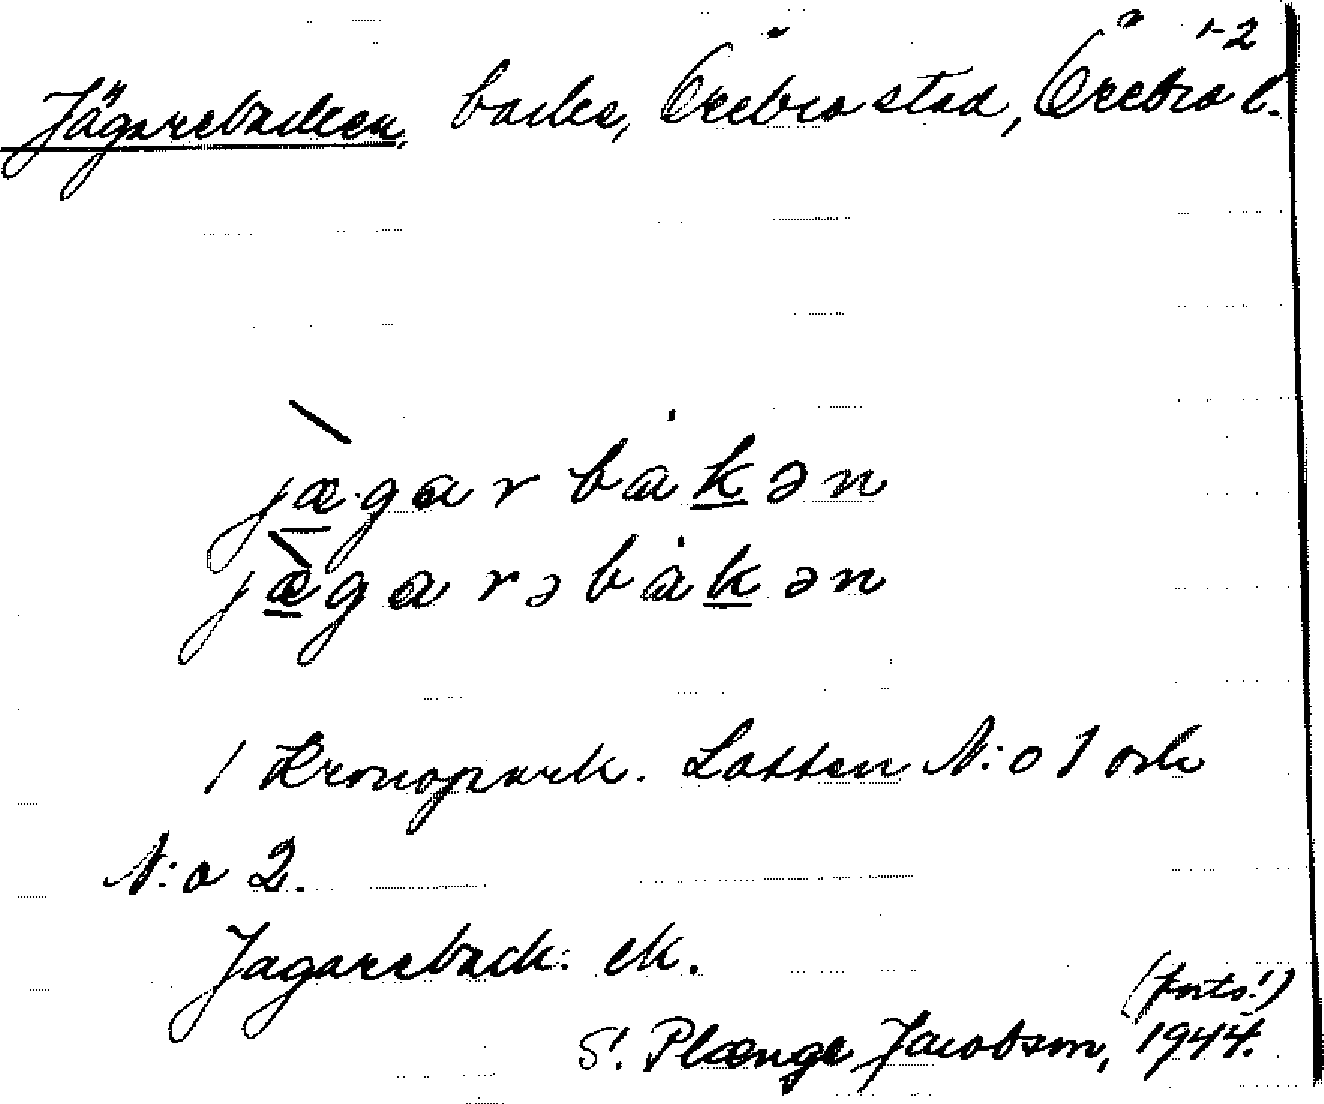 1-2
Jägarebacken, backe, Örebro stad, Örebro l.
jæ̀·garbȧkən
jæ̀garəbȧkən
/ Kronopark. Lotten N:o 1 och
N:o 2.
Jagareback. ek.
(forts!)
S. Plænge Jacobson, 1944.